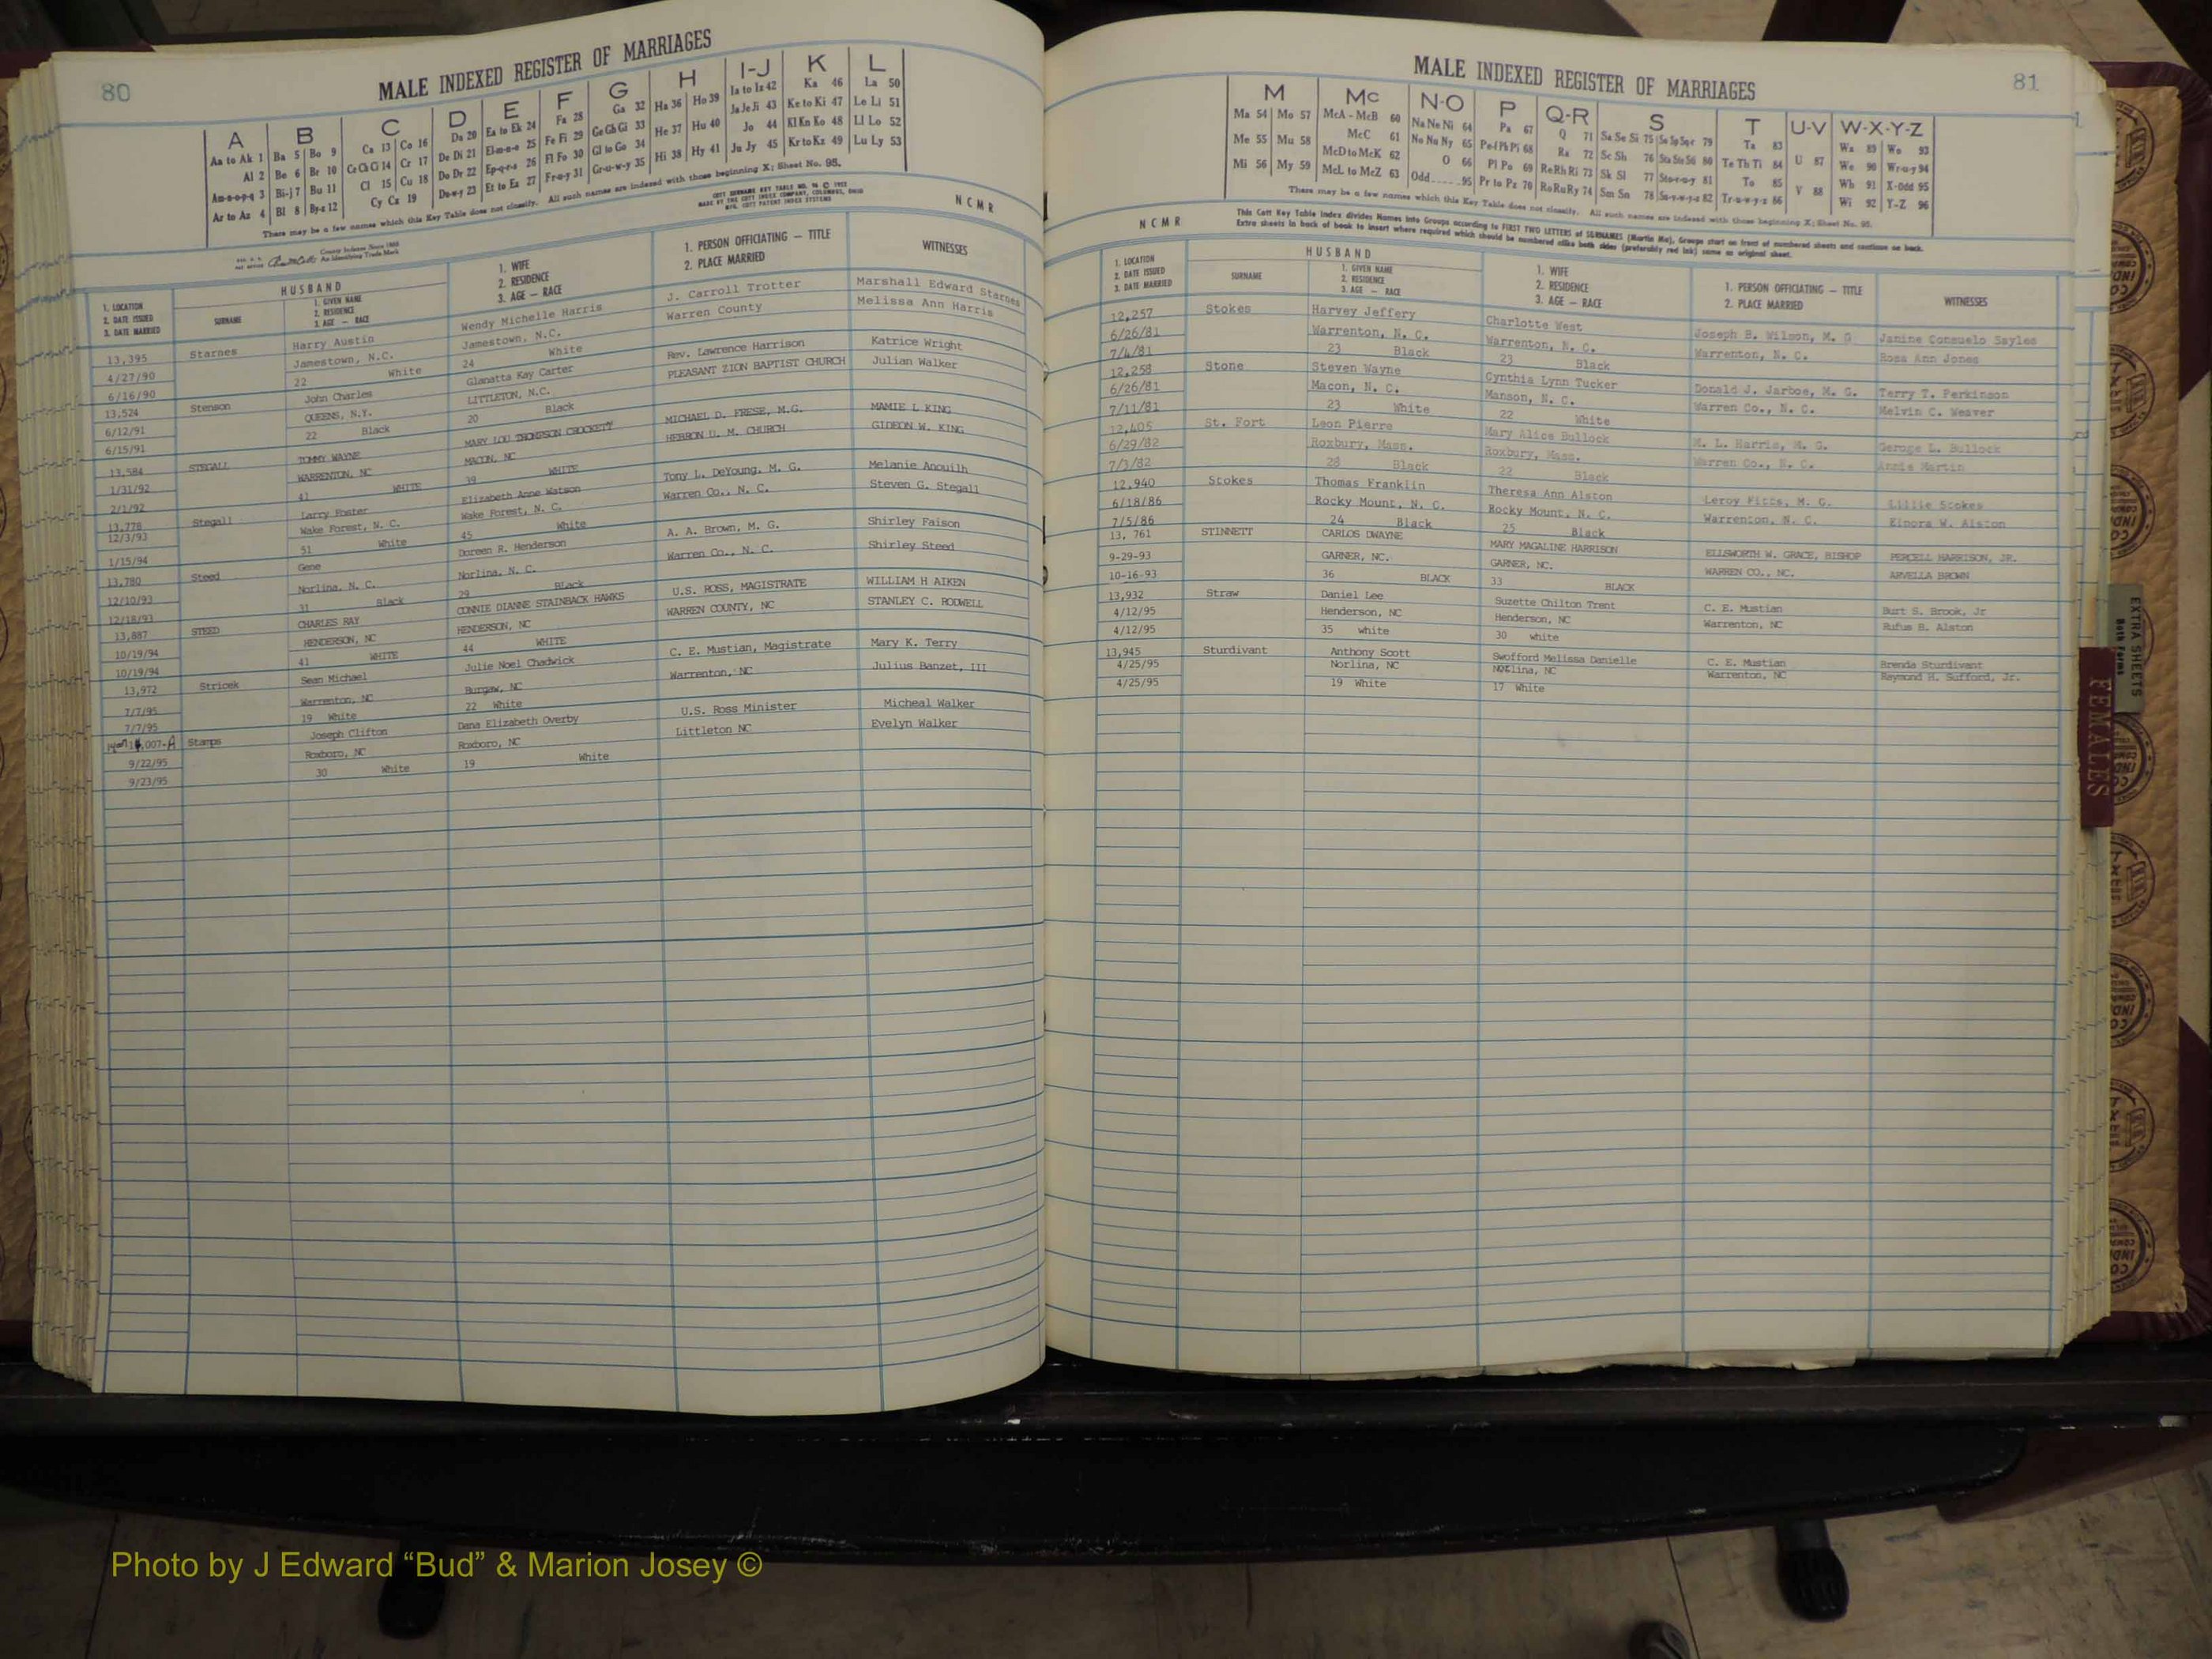 80
MALE INDEXED REGISTER OF MARRIAGES
A B C D E F G H I-J K L
Aa to Ak 1 Ba 5 Bo 9 Ca 13 Co 16 Da 20 Ea to Ek 24 Fa 28 Ga 32 Ha 36 Ho 39 Ia to Iz 42 Ka 46 La 50
Al 2 Be 6 Br 10 Ce Ch Ci 14 Cr 17 De Di 21 El-m-n-o 25 Fe Fi 29 Ge Gh Gi 33 He 37 Hu 40 Ja Je Ji 43 Ke to Ki 47 Le Li 51
Am-n-o-p-q 3 Bi-j 7 Bu 11 Cl 15 Cu 18 Do Dr 22 Ep-q-r-s 26 Fl Fo 30 Gl to Go 34 Hi 38 Hy 41 Jo 44 Kl Kn Ko 48 Ll Lo 52
Ar to Az 4 Bl 8 By-z 12 Cy Cz 19 Du-w-y 23 Et to Ez 27 Fr-u-y 31 Gr-u-w-y 35 Ju Jy 45 Kr to Kz 49 Lu Ly 53
There may be a few names which this Key Table does not classify. All such names are indexed with those beginning X; Sheet No. 95.
NCMR
HUSBAND
1. LOCATION
2. DATE ISSUED
3. DATE MARRIED
SURNAME
1. GIVEN NAME
2. RESIDENCE
3. AGE — RACE
1. WIFE
2. RESIDENCE
3. AGE — RACE
1. PERSON OFFICIATING — TITLE
2. PLACE MARRIED
WITNESSES
13,395 Starnes Harry Austin Wendy Michelle Harris J. Carroll Trotter Marshall Edward Starnes
4/27/90 Jamestown, N.C. Jamestown, N.C. Warren County Melissa Ann Harris
6/16/90 22 White 24 White
13,524 Stenson John Charles Glanatta Kay Carter Rev. Lawrence Harrison Katrice Wright
6/12/91 QUEENS, N.Y. LITTLETON, N.C. PLEASANT ZION BAPTIST CHURCH Julian Walker
6/15/91 22 Black 20 Black
13,584 STEGALL TOMMY WAYNE MARY LOU THOMPSON CROCKETT MICHAEL D. FRESE, M.G. MAMIE L KING
1/31/92 WARRENTON, NC MACON, NC HEBRON U. M. CHURCH GIDEON W. KING
2/1/92 41 WHITE 39 WHITE
13,778 Stegall Larry Foster Elizabeth Anne Watson Tony L. DeYoung, M. G. Melanie Anouilh
12/3/93 Wake Forest, N. C. Wake Forest, N. C. Warren Co., N. C. Steven G. Stegall
1/15/94 51 White 45 White
13,780 Steed Gene Doreen R. Henderson A. A. Brown, M. G. Shirley Faison
12/10/93 Norlina, N. C. Norlina, N. C. Warren Co., N. C. Shirley Steed
12/18/93 31 Black 29 Black
13,887 STEED CHARLES RAY CONNIE DIANNE STAINBACK HAWKS U.S. ROSS, MAGISTRATE WILLIAM H AIKEN
10/19/94 HENDERSON, NC HENDERSON, NC WARREN COUNTY, NC STANLEY C. RODWELL
10/19/94 41 WHITE 44 WHITE
13,972 Stricek Sean Michael Julie Noel Chadwick C. E. Mustian, Magistrate Mary K. Terry
7/7/95 Warrenton, NC Burgaw, NC Warrenton, NC Julius Banzet, III
7/7/95 19 White 22 White
007-A Stamps Joseph Clifton Dana Elizabeth Overby U.S. Ross Minister Micheal Walker
9/22/95 Roxboro, NC Roxboro, NC Littleton NC Evelyn Walker
9/23/95 30 White 19 White
81
MALE INDEXED REGISTER OF MARRIAGES
M Mc N-O P Q-R S T U-V W-X-Y-Z
Ma 54 Mo 57 McA - McB 60 Na Ne Ni 64 Pa 67 Q 71 Sa Se Si 75 So Sp Sq-r 79 Ta 83 Wa 89 Wo 93
Me 55 Mu 58 McC 61 No Nu Ny 65 Pe-f Ph Pi 68 Ra 72 Sc Sh 76 Sta Ste Sti 80 Te Th Ti 84 U 87 We 90 Wr-u-y 94
Mi 56 My 59 McD to McK 62 O 66 Pl Po 69 Re Rh Ri 73 Sk Sl 77 Sto-r-u-y 81 To 85 V 88 Wh 91 X-Odd 95
McL to McZ 63 Odd......95 Pr to Pz 70 Ro Ru Ry 74 Sm Sn 78 Su-v-w-y-z 82 Tr-u-w-y-z 86 Wi 92 Y-Z 96
There may be a few names which this Key Table does not classify. All such names are indexed with those beginning X; Sheet No. 95.
NCMR
This Cott Key Table Index divides Names into Groups according to FIRST TWO LETTERS of SURNAMES (Martin Ma), Groups start on front of numbered sheets and continue on back.
Extra sheets in back of book to insert where required which should be numbered alike both sides (preferably red ink) same as original sheet.
HUSBAND
1. LOCATION
2. DATE ISSUED
3. DATE MARRIED
SURNAME
1. GIVEN NAME
2. RESIDENCE
3. AGE — RACE
1. WIFE
2. RESIDENCE
3. AGE — RACE
1. PERSON OFFICIATING — TITLE
2. PLACE MARRIED
WITNESSES
12,257 Stokes Harvey Jeffery Charlotte West Joseph B. Wilson, M. G Janine Consuelo Sayles
6/26/81 Warrenton, N. C. Warrenton, N. C. Warrenton, N. C. Rosa Ann Jones
7/4/81 23 Black 23 Black
12,258 Stone Steven Wayne Cynthia Lynn Tucker Donald J. Jarboe, M. G. Terry T. Perkinson
6/26/81 Macon, N. C. Manson, N. C. Warren Co., N. C. Melvin C. Weaver
7/11/81 23 White 22 White
12,405 St. Fort Leon Pierre Mary Alice Bullock M. L. Harris, M. G. Geroge L. Bullock
6/29/82 Roxbury, Mass. Roxbury, Mass. Warren Co., N. C. Annie Martin
7/3/82 28 Black 22 Black
12,940 Stokes Thomas Franklin Theresa Ann Alston Leroy Fitts, M. G. Lillie Stokes
6/18/86 Rocky Mount, N. C. Rocky Mount, N. C. Warrenton, N. C. Elnora W. Alston
7/5/86 24 Black 25 Black
13, 761 STINNETT CARLOS DWAYNE MARY MAGALINE HARRISON ELLSWORTH W. GRACE, BISHOP PERCELL HARRISON, JR.
9-29-93 GARNER, NC. GARNER, NC. WARREN CO., NC. ARVELLA BROWN
10-16-93 36 BLACK 33 BLACK
13,932 Straw Daniel Lee Suzette Chilton Trent C. E. Mustian Burt S. Brook, Jr
4/12/95 Henderson, NC Henderson, NC Warrenton, NC Rufus B. Alston
4/12/95 35 white 30 white
13,945 Sturdivant Anthony Scott Swofford Melissa Danielle C. E. Mustian Brenda Sturdivant
4/25/95 Norlina, NC Norlina, NC Warrenton, NC Raymond H. Sufford, Jr.
4/25/95 19 White 17 White
EXTRA SHEETS
Both Forms
FEMALES
Photo by J Edward “Bud” & Marion Josey ©